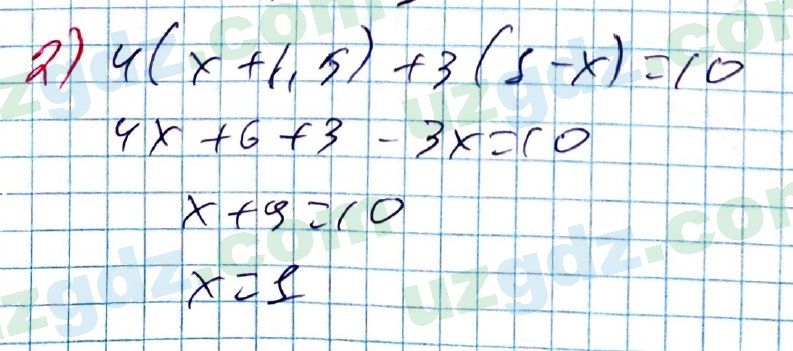 2) 4(x+1,5)+3(1-x)=10
4x+6+3-3x=10
x+9=10
x=1
uzgdz.com